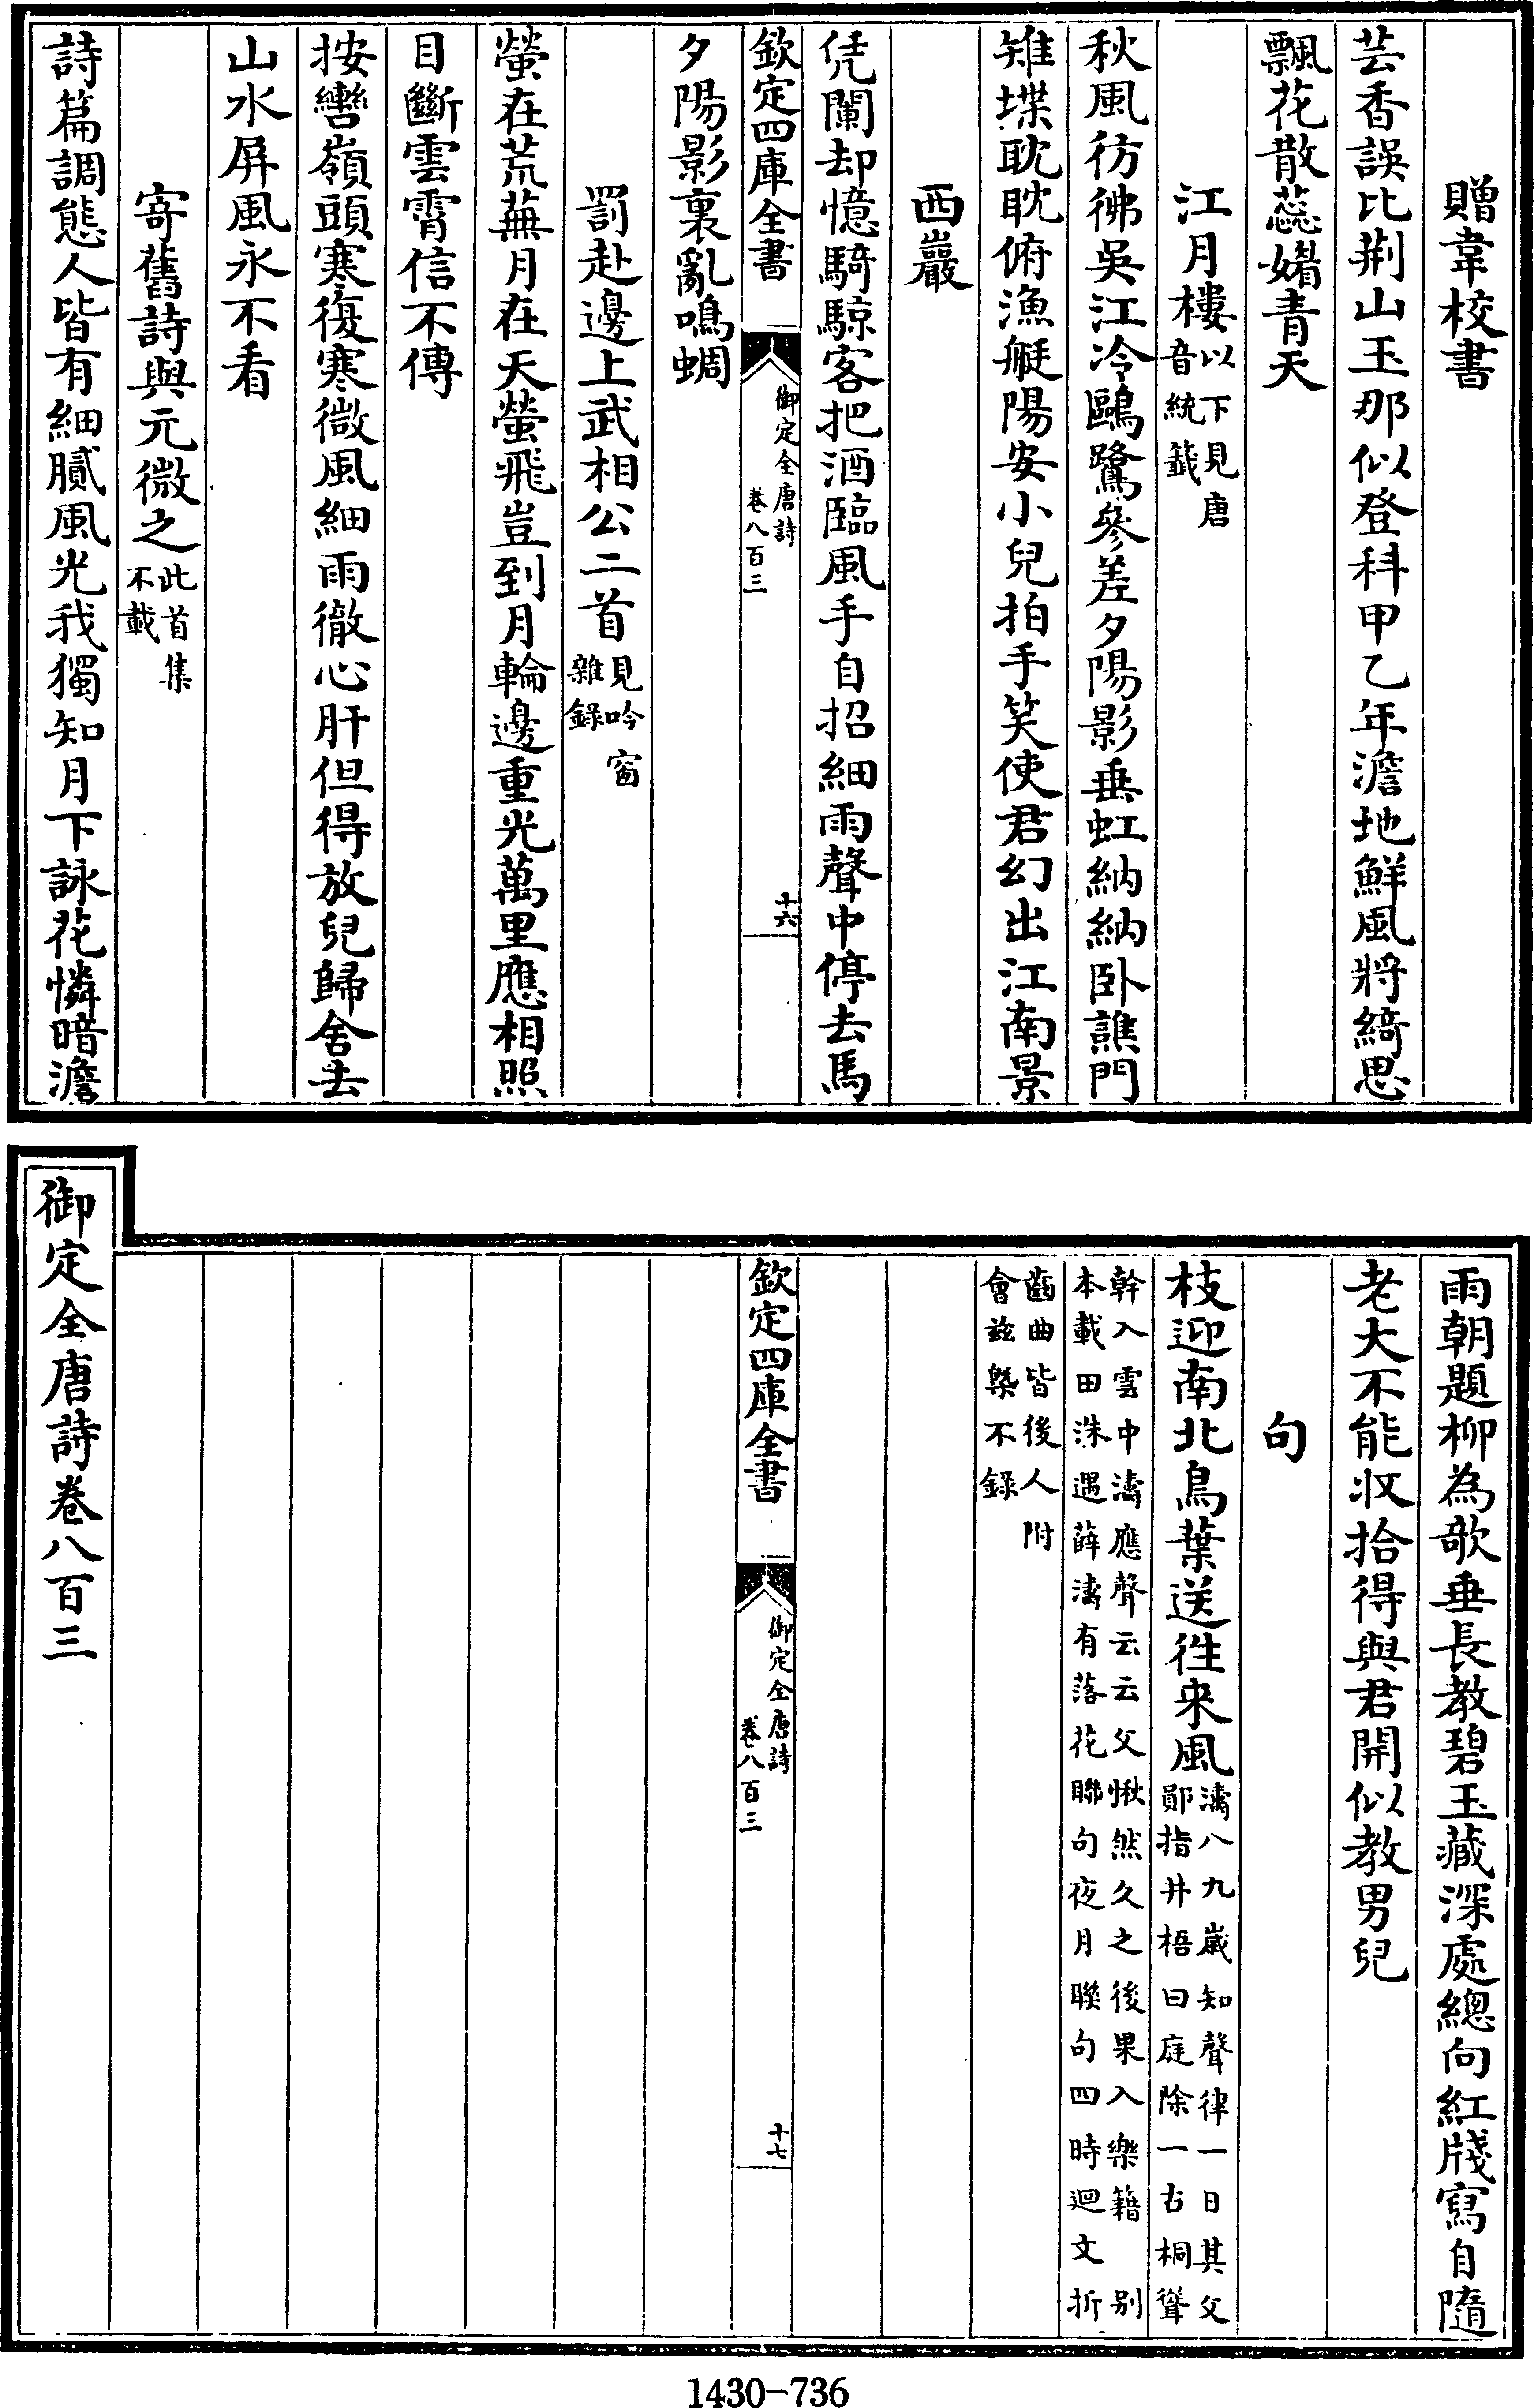 贈韋校書
芸香誤比荆山玉那似登科甲乙年澹地鮮風將綺思
飄花散蕊媚青天
江月樓以下見唐音統籖
秋風彷彿吳江冷鷗鷺參差夕陽影垂虹納納卧譙門
雉堞耽耽俯漁艇陽安小兒拍手笑使君幻出江南景
西巖
凭闌却憶騎鯨客把酒臨風手自招細雨聲中停去馬
欽定四庫全書
御定全唐詩
卷八百三
十六
夕陽影裏亂鳴蜩
罰赴邊上武相公二首見吟窗雜錄
螢在荒蕪月在天螢飛豈到月輪邊重光萬里應相照
目斷雲霄信不傳
按轡嶺頭寒復寒微風細雨徹心肝但得放兒歸舍去
山水屏風永不看
寄舊詩與元微之此首集不載
詩篇調態人皆有細膩風光我獨知月下詠花憐暗澹
雨朝題柳為欹垂長教碧玉藏深處總向紅牋寫自隨
老大不能收拾得與君開似教男兒
句
枝迎南北鳥葉送徃來風濤八九歲知聲律一日其父
鄖指井梧曰庭除一古桐聳
幹入雲中濤應聲云云父愀然久之後果入樂籍 别
本載田洙遇薛濤有落花聯句夜月聫句四時迴文折
齒曲皆後人附
會兹槩不錄
欽定四庫全書
御定全唐詩
卷八百三
十七
御定全唐詩卷八百三
1430-736